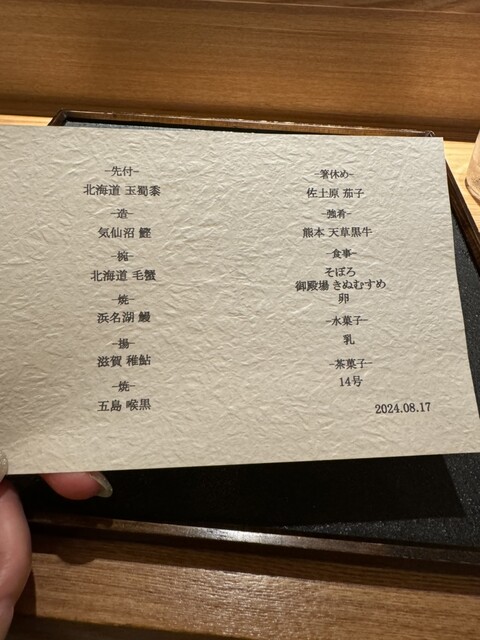 -先付-
北海道 玉蜀黍
-造-
気仙沼 鰹
-椀-
北海道 毛蟹
-焼-
浜名湖 鰻
-揚-
滋賀 稚鮎
-焼-
五島 喉黒
-箸休め-
佐土原 茄子
-強肴-
熊本 天草黒牛
-食事-
そぼろ
御殿場 きぬむすめ
卵
-水菓子-
乳
-茶菓子-
14号
2024.08.17